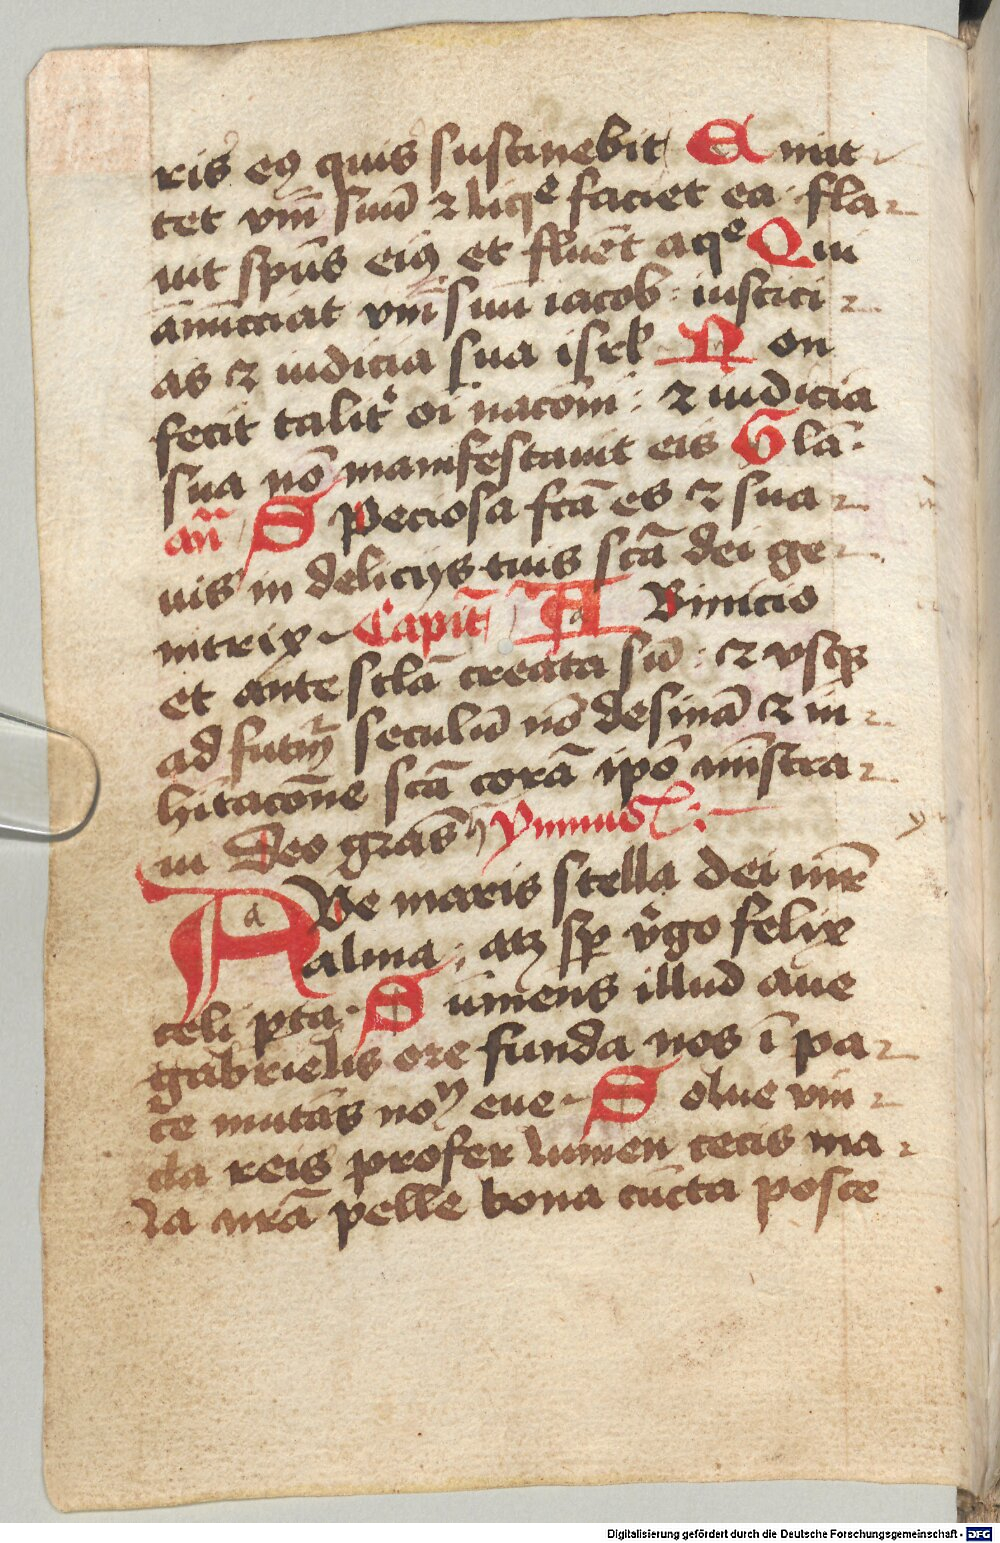 ris eꝫ quis sustinebit Emit
tet v̄m̄ suū ⁊ liqͤ faciet ea · fla
uit sp̄us eiꝫ et fluēt aqͤ Qui
ānūcciat v̄m̄ suū iacob · iustici
as ⁊ iudicia sua isrl̄ Non
fecit talit̉ oī nacōni · ⁊ iudicia
sua nō manifestauit eis Glā ·
an̄ Speciosa fc̄a es ⁊ sua
uis in delicijs tuis sc̄a dei ge
nitrix Capit̄ Ab inicio
et ante sc̄la creata sū · ⁊ vsqꝫ
ad futuꝝ seculū nō desinā ⁊ in
hītacōne sc̄a corā ip̄o mīstra
ui Deo gr̄as ymnus
a Ave maris stella dei mr̄e
alma · atqꝫ sp̄ v̉go felix
celi pͦta · Sumens illud aue
gabrielis ore funda nos ī pa
ce mutās noꝫ eue Solue vin
cla reis profer lumen cecis ma
la nr̄a pelle bona cūcta posce
Digitalisierung gefördert durch die Deutsche Forschungsgemeinschaft - DFG